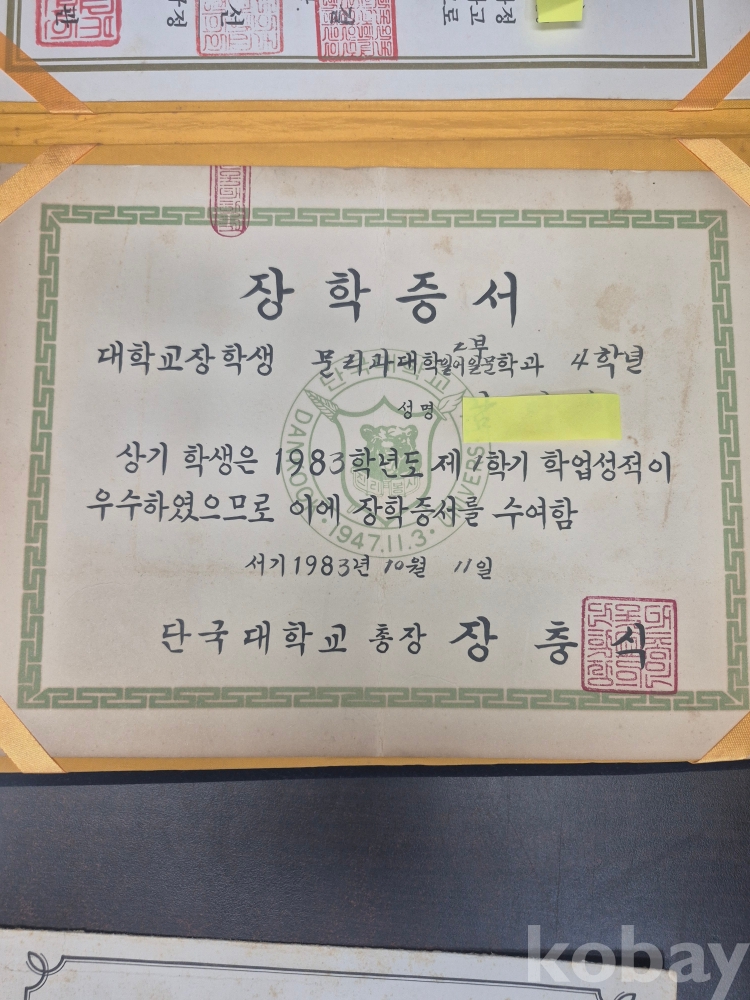 장학증서
대학교장학생 문리과대학 2부 일어일문학과 4학년
성명
상기 학생은 1983학년도 제 1학기 학업성적이
우수하였으므로 이에 장학증서를 수여함
서기 1983년 10월 11일
단국대학교 총장 장충식
단국대학교
DANKOOK UNIVERSITY
진리 봉사
1947.11.3.
kobay